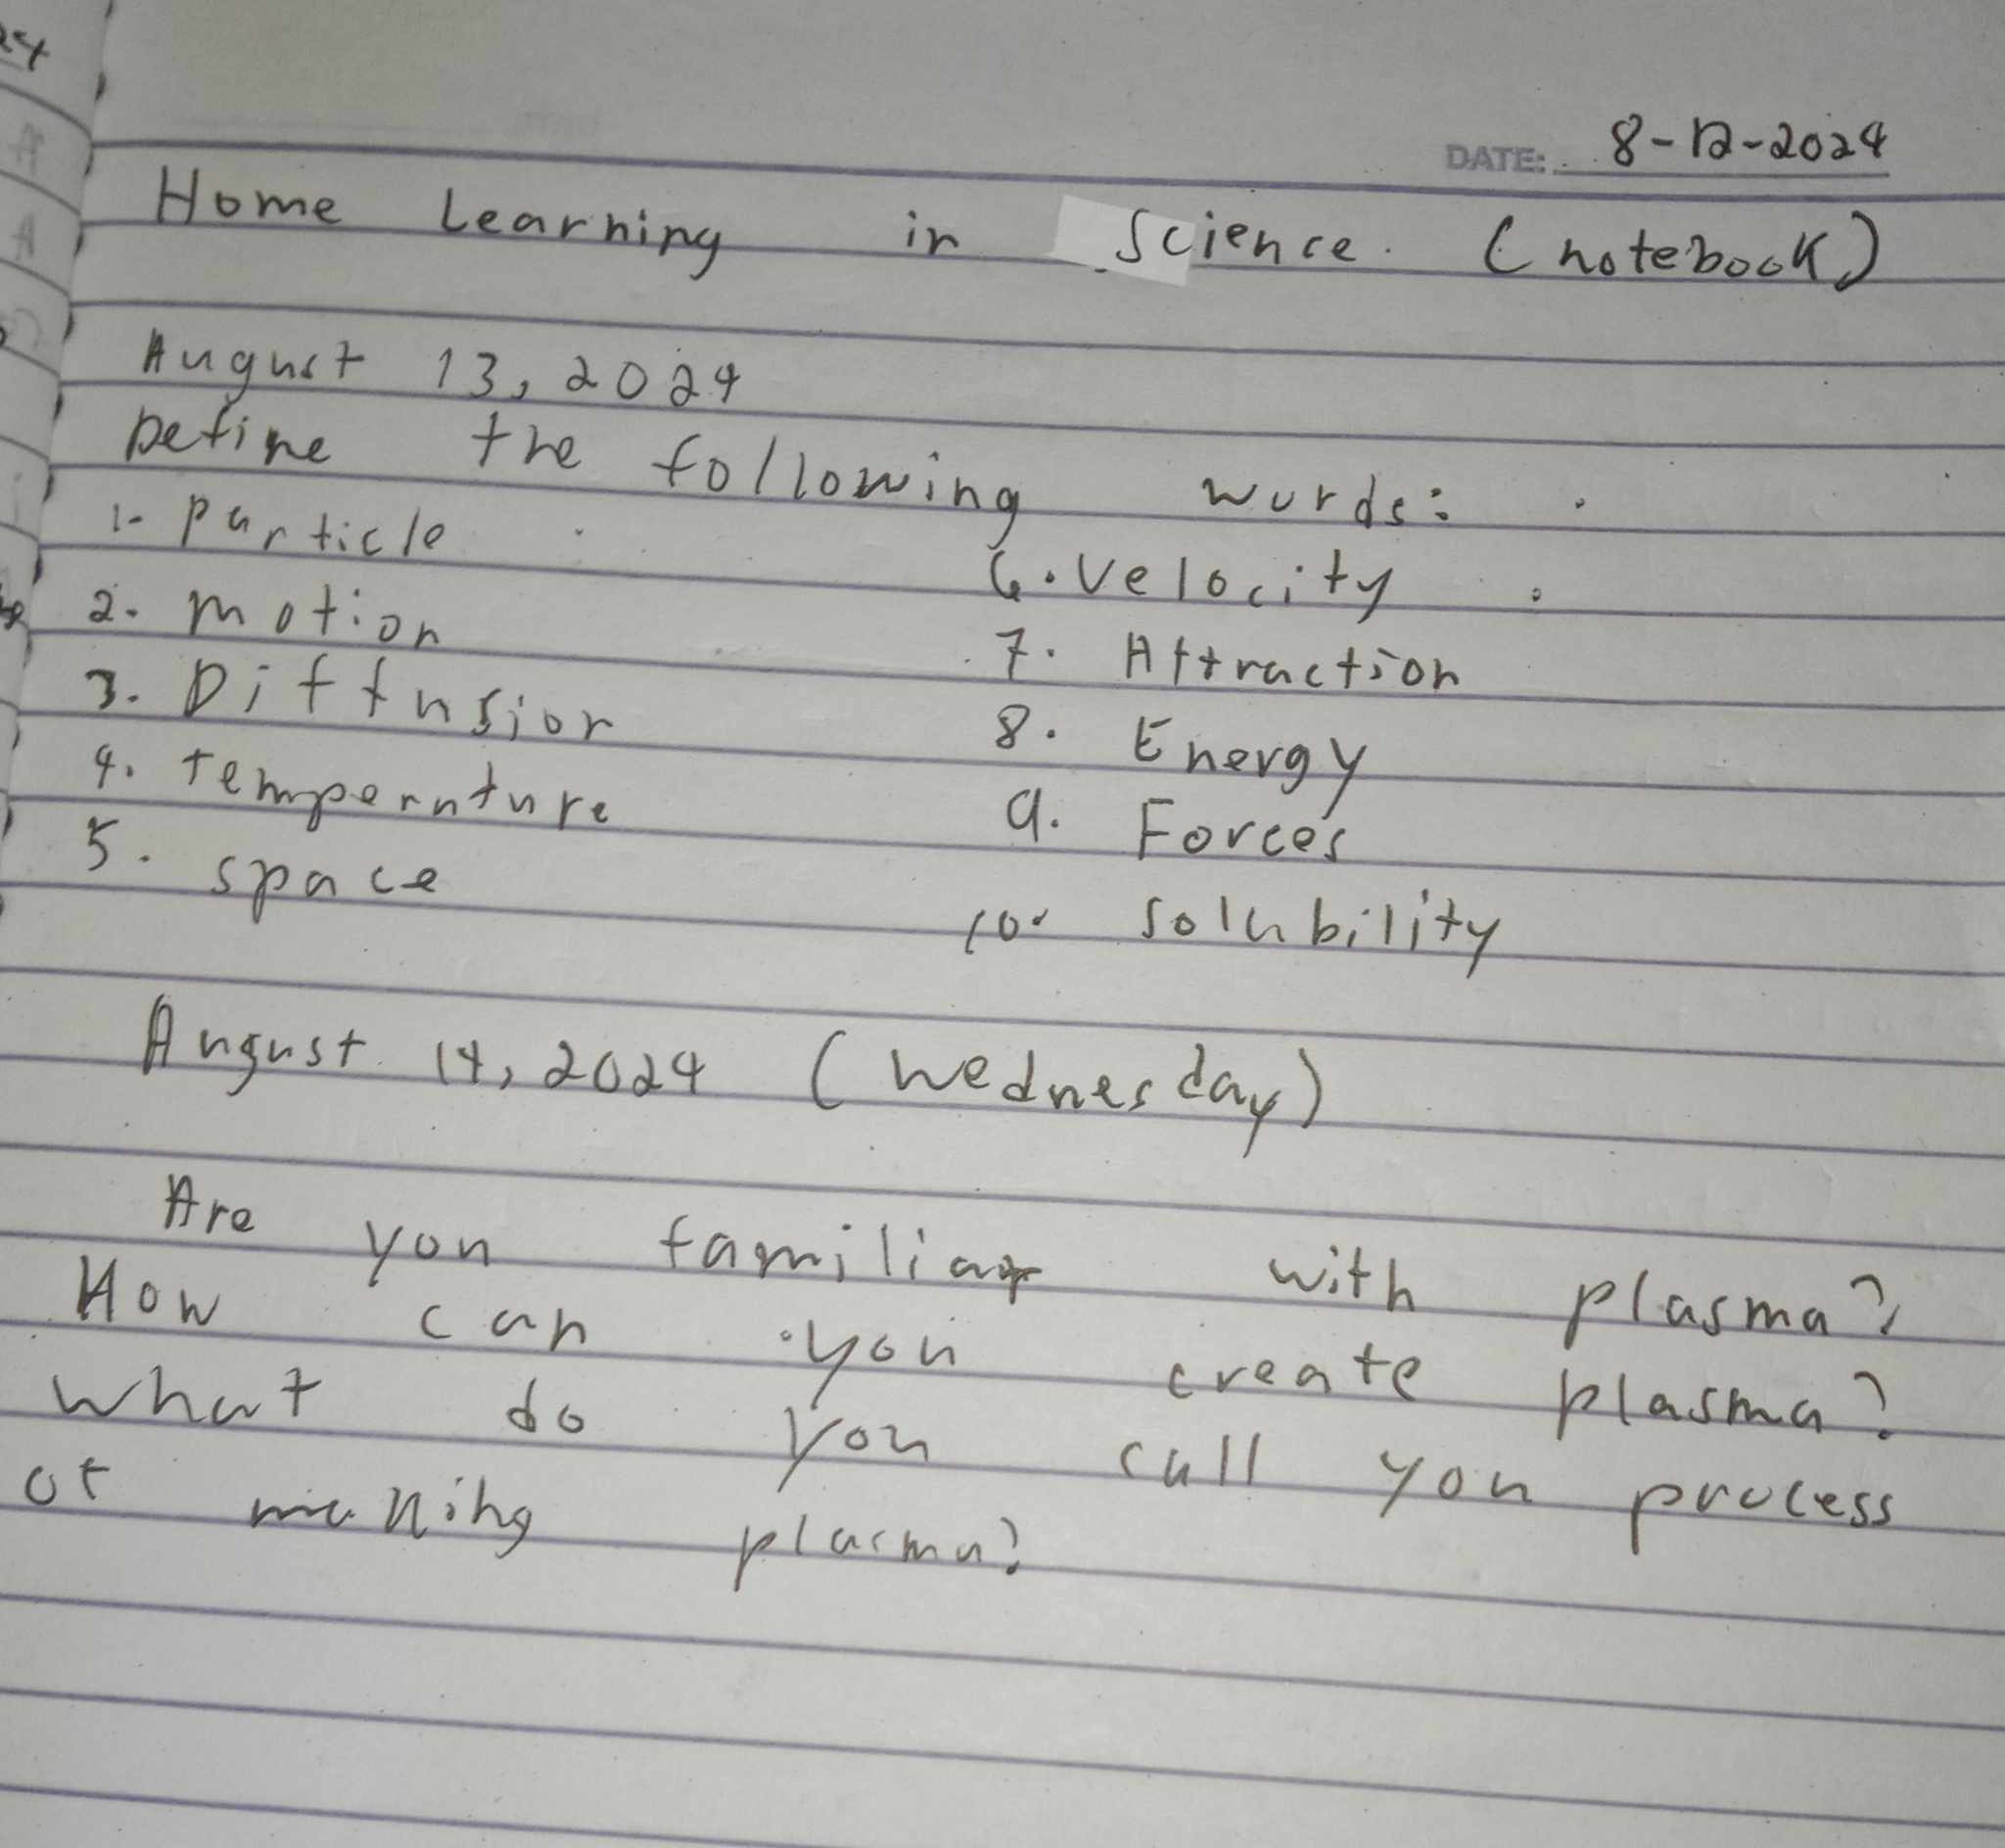 DATE: 8-12-2024
Home Learning in Science. (notebook)
August 13, 2024
Define the following words:
1. particle
2. motion
3. Diffusion
4. temperature
5. space
6. Velocity
7. Attraction
8. Energy
9. Forces
10. solubility
August 14, 2024 (Wednesday)
Are you familiar with plasma?
How can you create plasma?
What do you call you process
of making plasma?